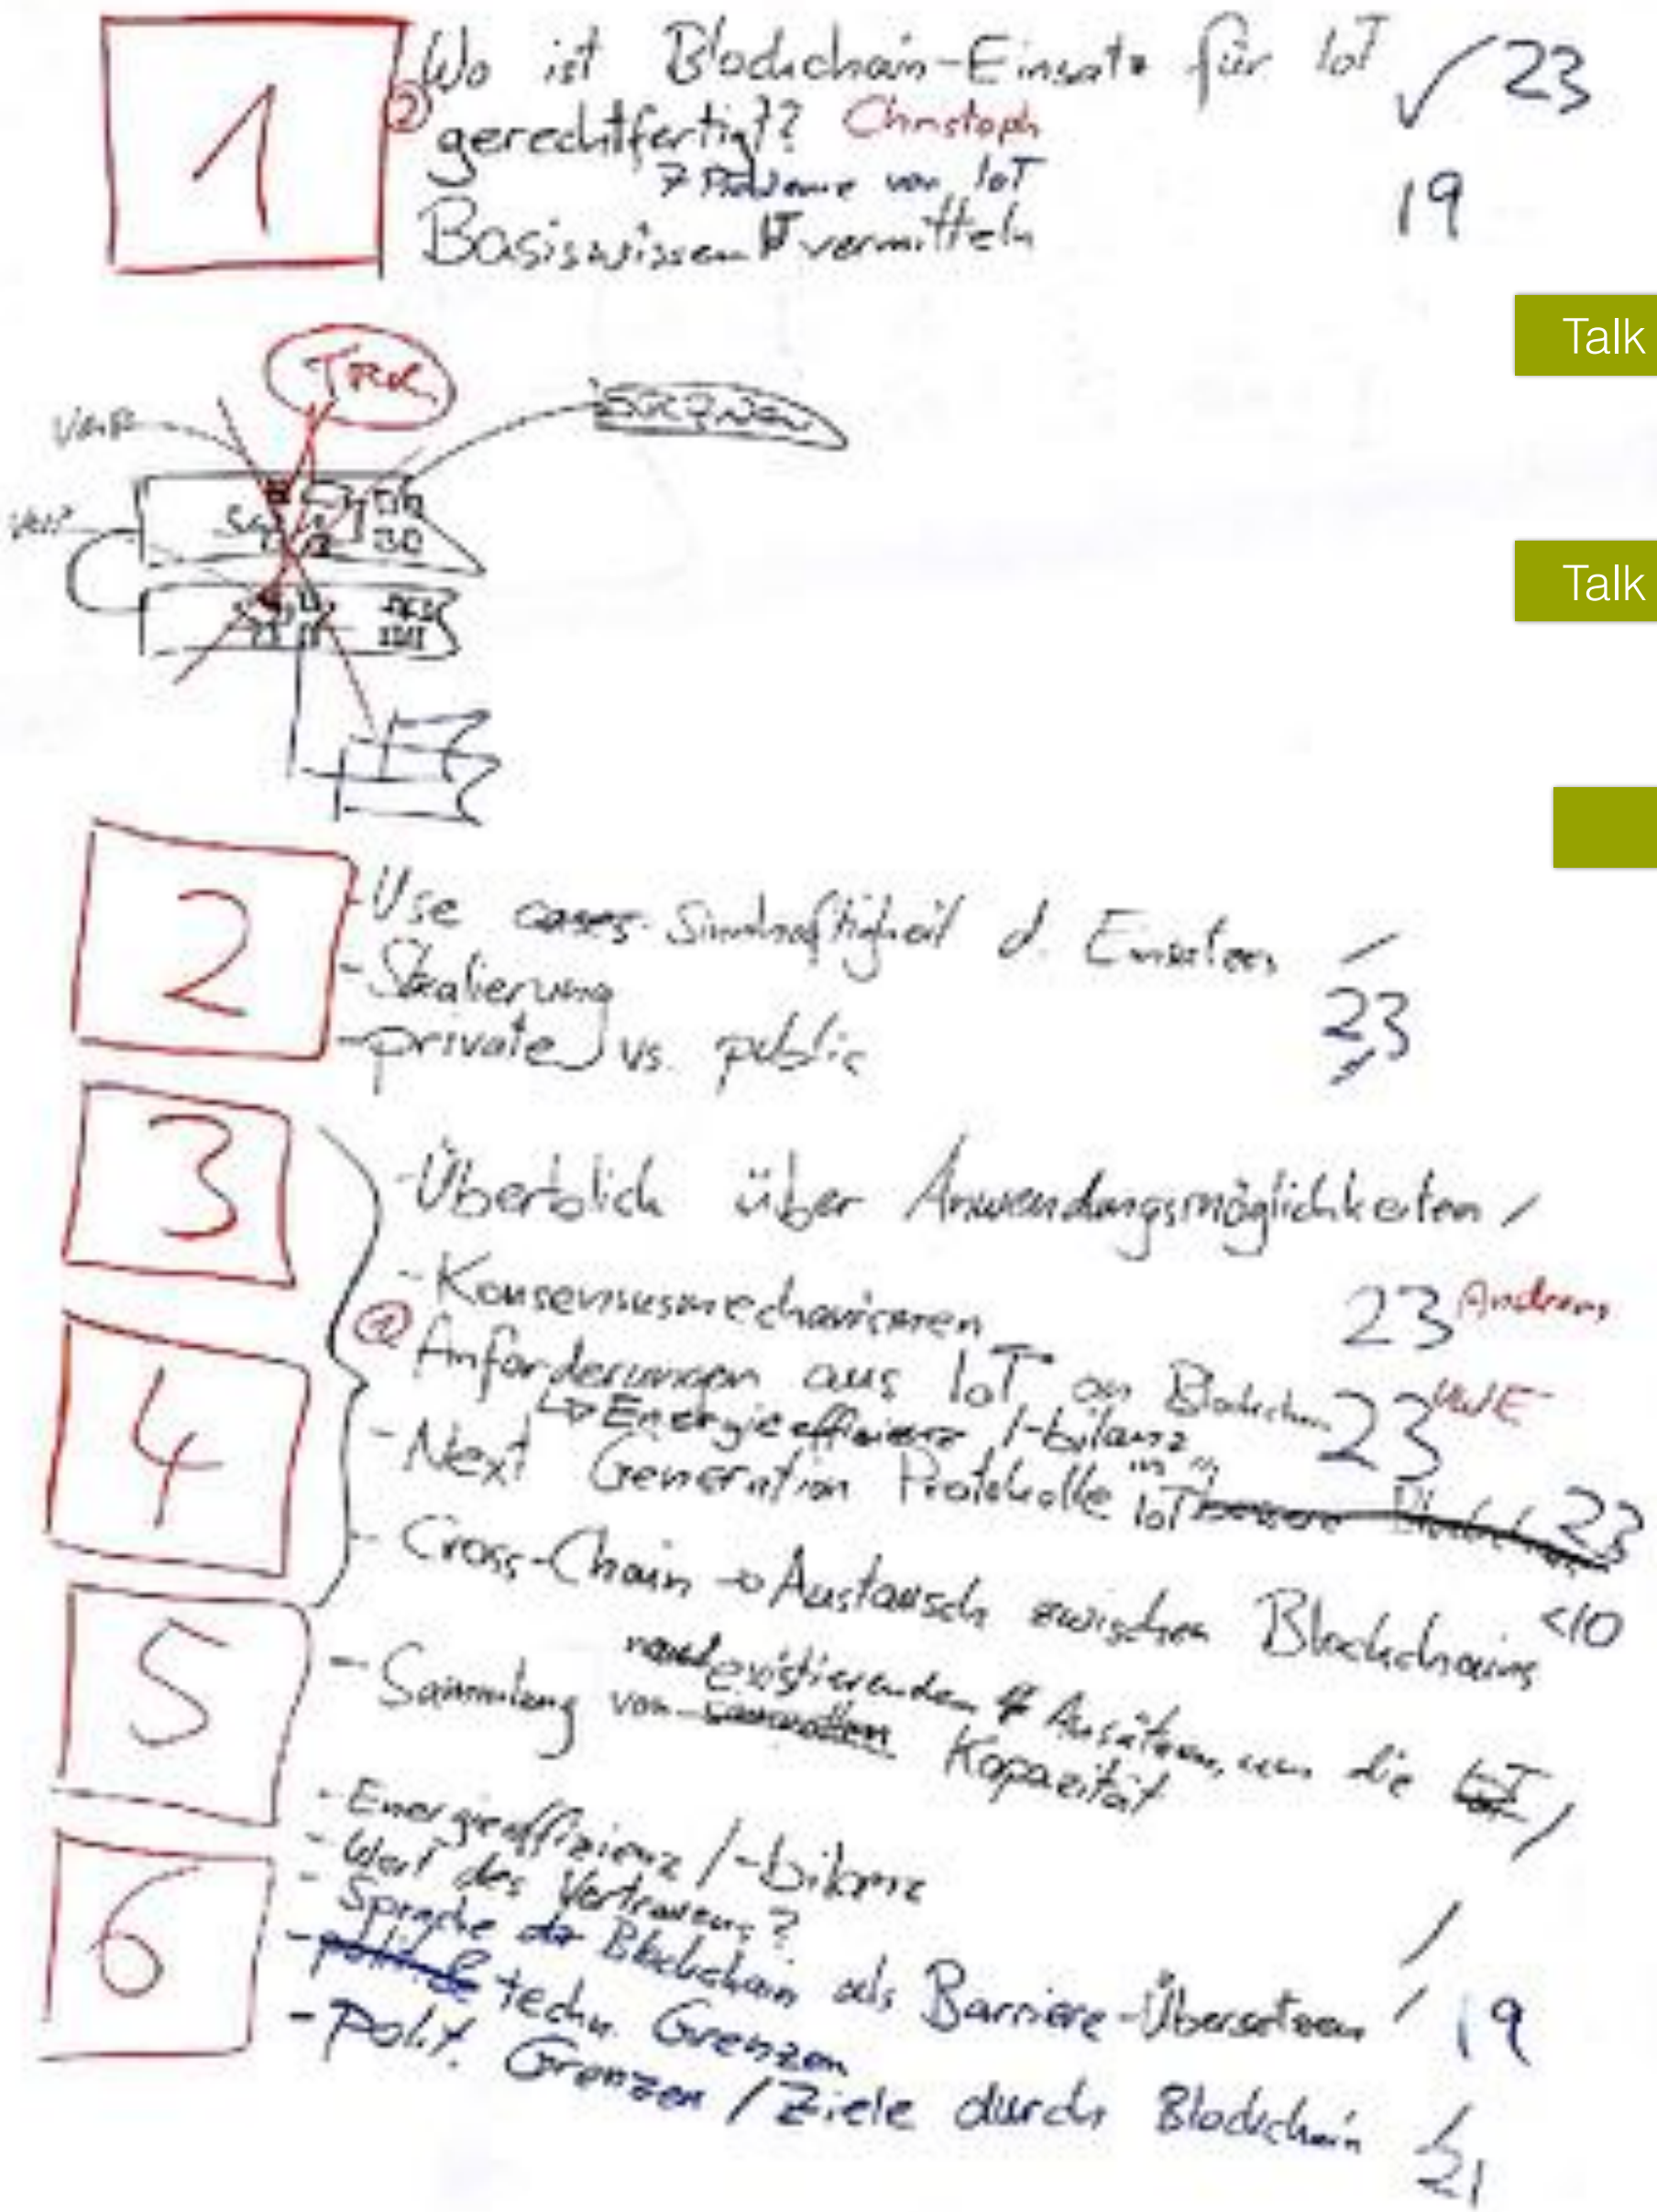 1
Wo ist Blockchain-Einsatz für IoT ✓ 23
② gerechtfertigt? Christoph
7 Probleme von IoT
Basiswissen vermitteln 19
Talk
Talk
2
- Use cases - Sinnhaftigkeit d. Einsatzes /
- Skalierung 23
- private vs. public
3
- Überblick über Anwendungsmöglichkeiten /
- Konsensusmechanismen 23 Andreas
4
Anforderungen aus IoT an Blockchain 23 UWE
↳ Energieeffizienz /-bilanz
- Next Generation Protokolle in IoT 23
- Cross-Chain → Austausch zwischen Blockchains <10
5
- Sammlung von existierenden Ansätzen, um die /
Kapazität
- Energieeffizienz /-bilanz
- Wert des Vertrauens? /
6
- Sprache der Blockchain als Barriere-Übersetzen / 19
- techn. Grenzen
- polit. Grenzen / Ziele durch Blockchain / 21